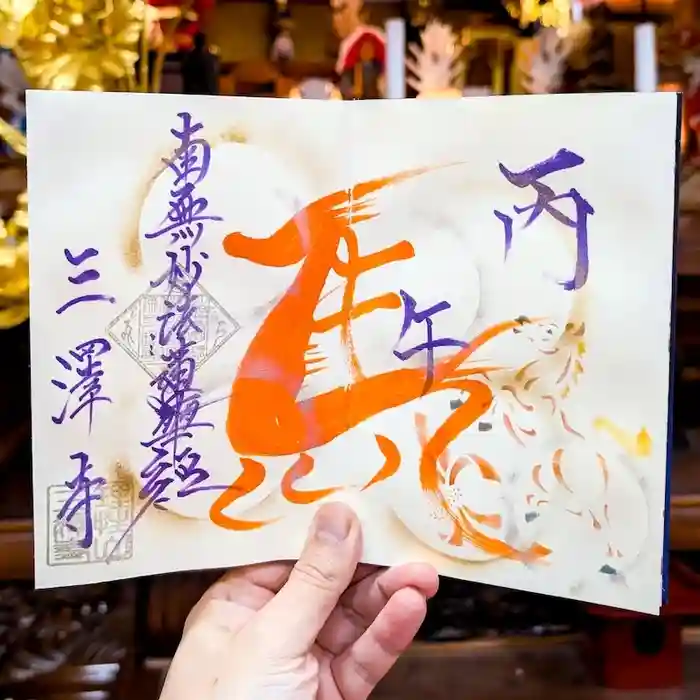 丙
午
馬
南無妙法蓮華経
三澤寺